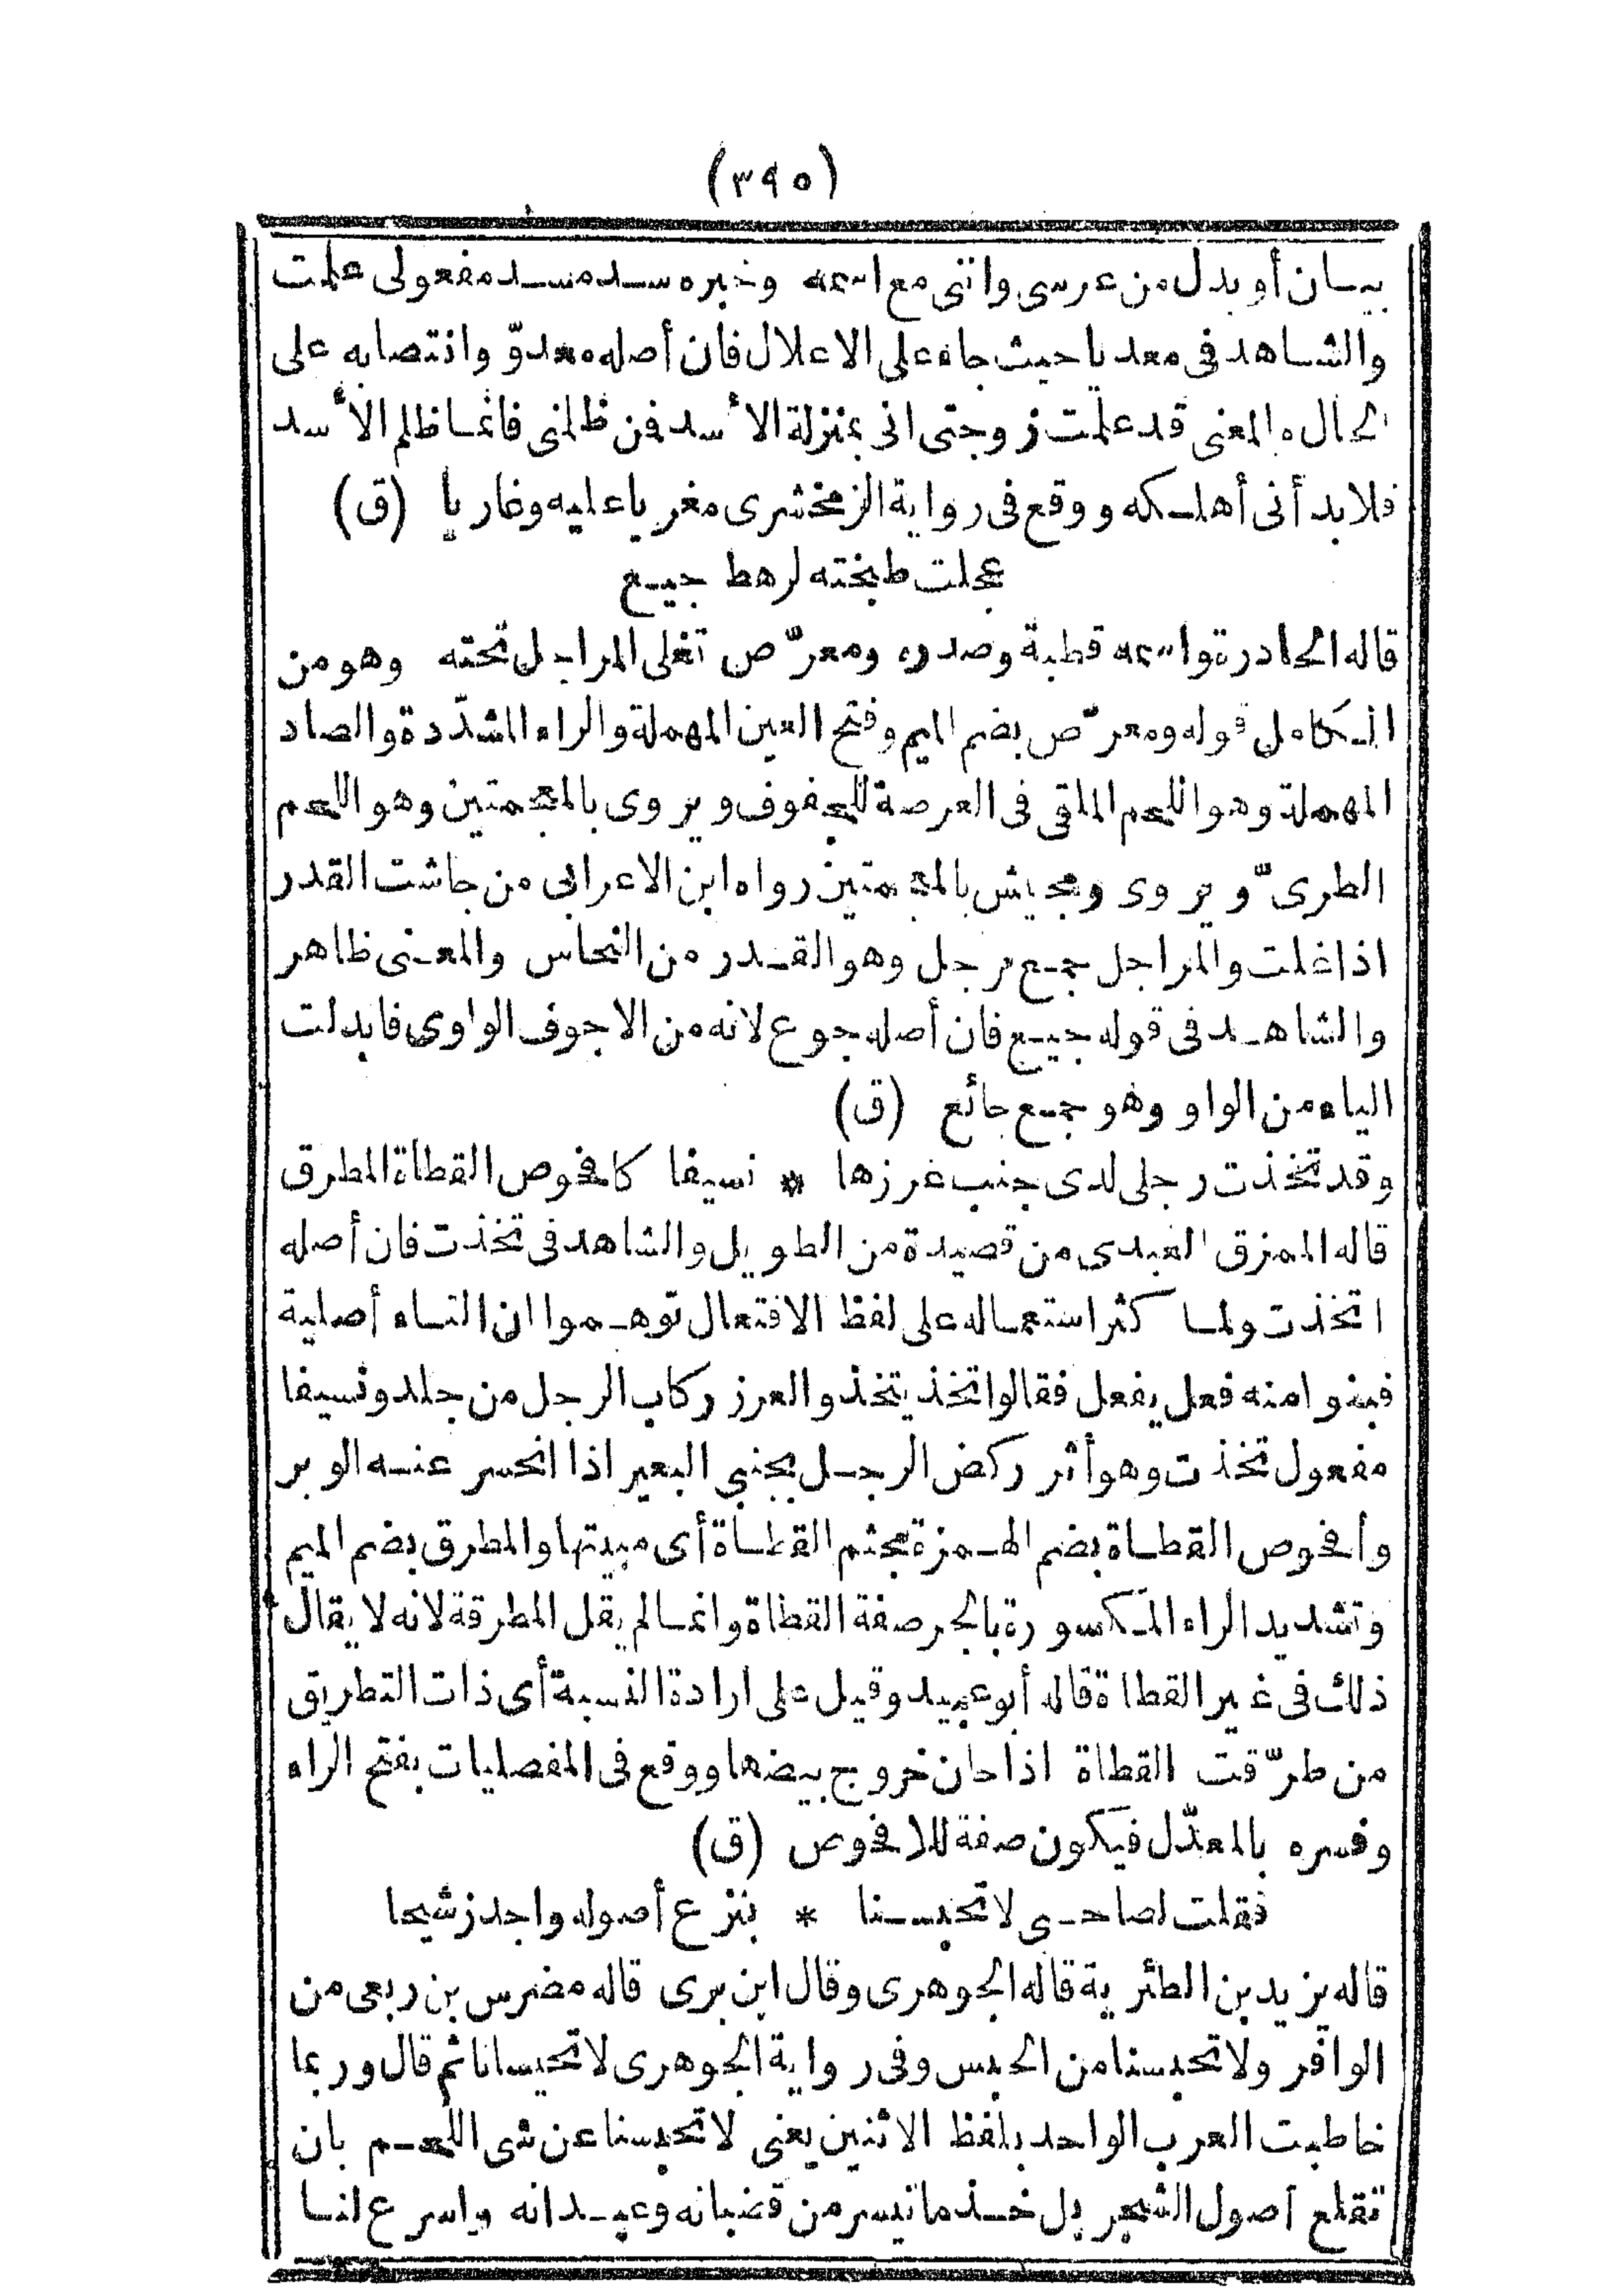 (٣٩٥)
بيان أو بدل من عرسى وانني مع اسمه وخبره سد مسد مفعولى علمت
والشاهد فى معديا حيث جاء على الاعلال فان أصله معدوّ وانتصابه على
الحال والمعنى قد علمت زوجتى انى بمنزلة الأسد فمن ظلمنى فانما ظلم الأسد
فلابد أنى أهلكه ووقع فى رواية الزمخشرى مغريا عليه وغاريا (ق)
عجلت طبخته لرهط جيع
قاله الحادرة واسمه قطبة وصدره ومعرّص تغلى المراجل تحته وهو من
الكامل قوله ومعرّص بضم الميم وفتح العين المهملة والراء المشدّدة والصاد
المهملة وهو اللحم الملقى فى العرصة للجفوف ويروى بالمعجمتين وهو اللحم
الطرىّ ويروى ومجيش بالمعجمتين رواه ابن الاعرابى من جاشت القدر
اذا غلت والمراجل جمع مرجل وهو القدر من النحاس والمعنى ظاهر
والشاهد فى قوله جيع فان أصله جوع لانه من الاجوف الواوى فابدلت
الياء من الواو وهو جمع جائع (ق)
وقد تخذت رجلى لدى جنب غرزها * نسيفا كافحوص القطاة المطرق
قاله الممزق العبدى من قصيدة من الطويل والشاهد فى تخذت فان أصله
اتخذت ولما كثر استعماله على لفظ الافتعال توهموا ان التاء أصلية
فبنوا منه فعل يفعل فقالوا تخذ يتخذ والعرز ركاب الرجل من جلد ونسيفا
مفعول تخذت وهو أثر ركض الرجل بجنبى البعير اذا انحسر عنه الوبر
وأفحوص القطاة بضم الهمزة مجثم القطاة أى مبيتها والمطرق بضم الميم
وتشديد الراء المكسورة بالجر صفة القطاة وانما لم يقل المطرقة لانه لا يقال
ذلك فى غير القطاة قاله أبو عبيد وقيل على ارادة النسبة أى ذات التطريق
من طرّقت القطاة اذا حان خروج بيضها ووقع فى المفصليات بفتح الراء
وفسره بالمعدّل فيكون صفة للافحوص (ق)
فقلت لصاحبى لا تحبسنا * بنزع أصوله واجدز شيحا
قاله يزيد بن الطثرية قاله الجوهرى وقال ابن برى قاله مضرس بن ربعى من
الوافر ولا تحبسنا من الحبس وفى رواية الجوهرى لا تحبسانا ثم قال وربما
خاطبت العرب الواحد بلفظ الاثنين يعنى لا تحبسنا عن شى اللحم بان
تقلع أصول الشجر بل خذ ما تيسر من قضبانه وعيدانه واسرع لنا